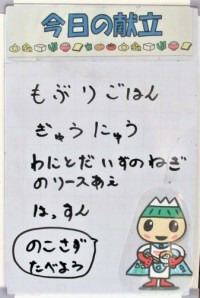 今日の献立
もぶりごはん
ぎゅうにゅう
わにとだいずのねぎ
のソースあえ
はっすん
のこさず
たべよう